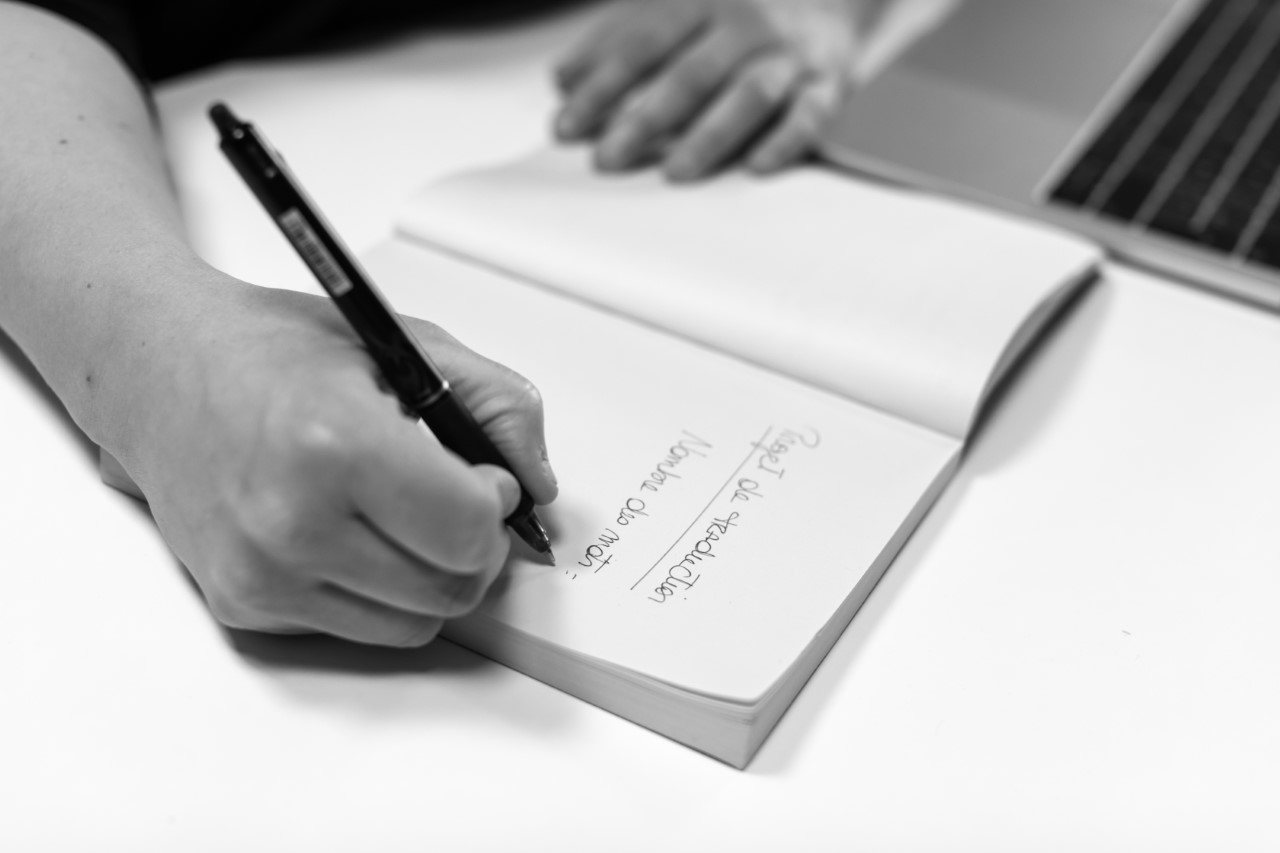 Projet de traduction
Nombre de mots :